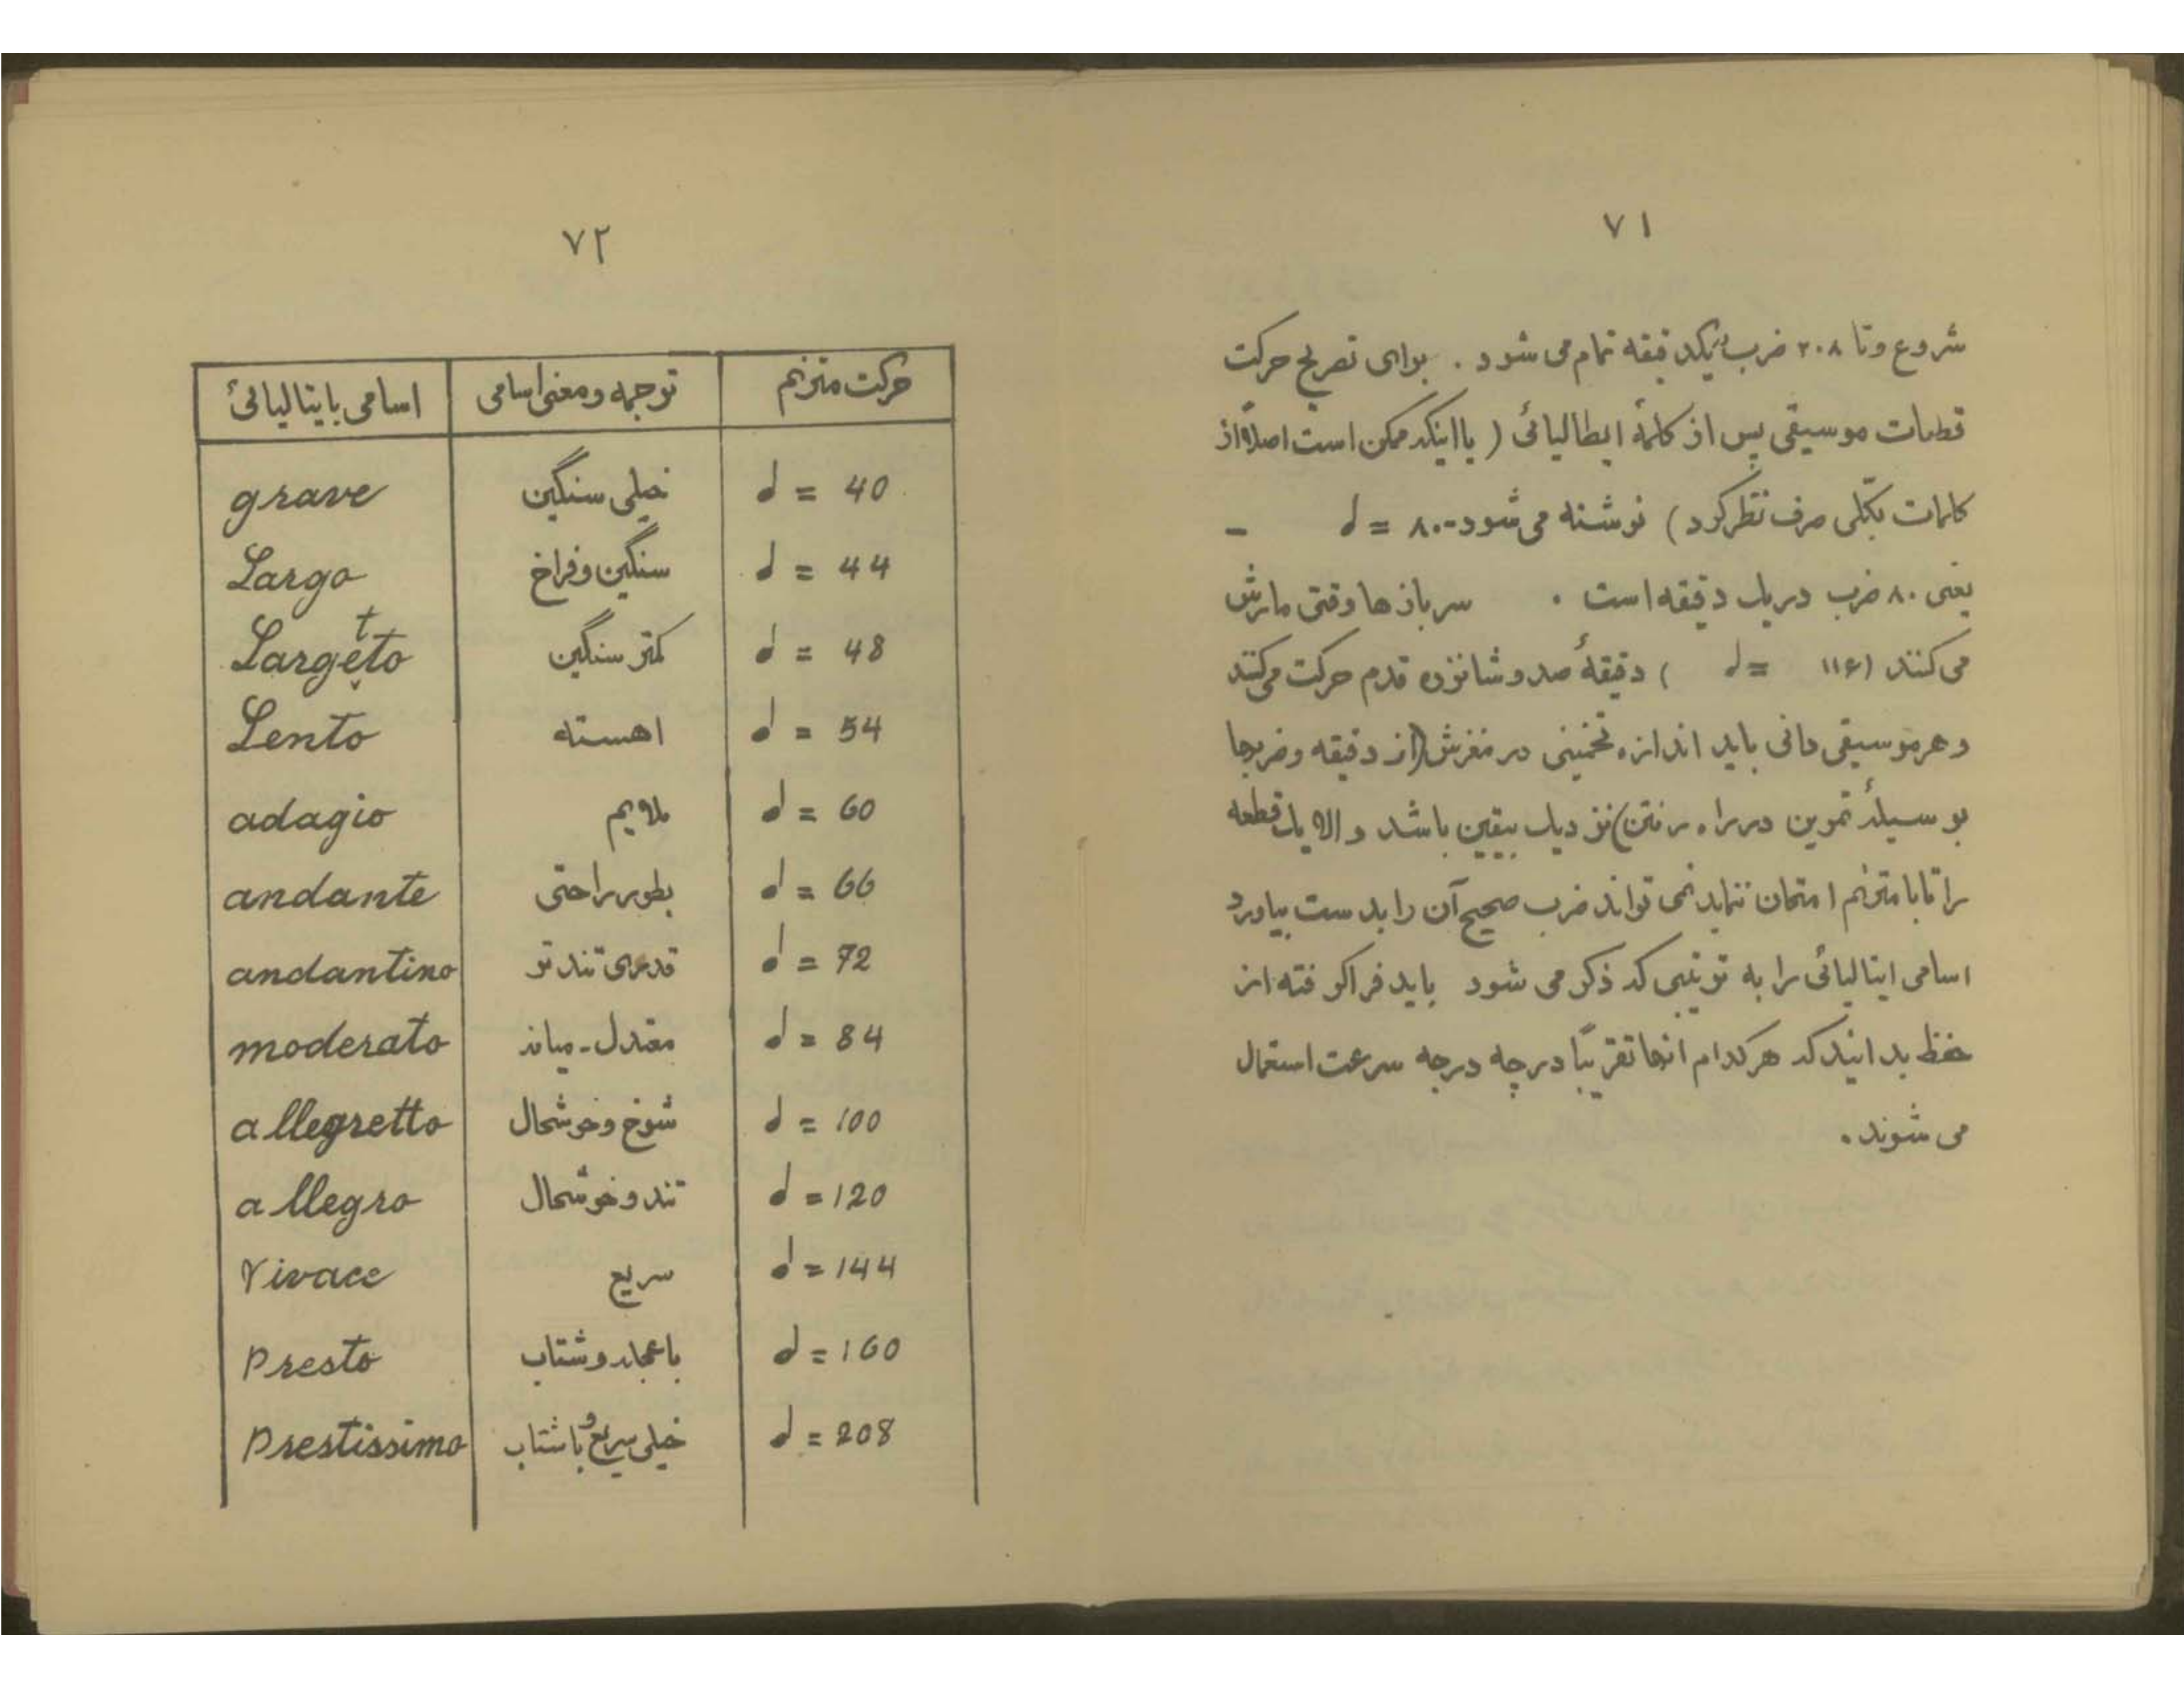 ۷۱
شروع و تا ۲۰۸ ضرب یکدقیقه تمام می شود . برای تصریح حرکت
قطعات موسیقی پس از کلمهٔ ایطالیائی ( یا اینکه ممکن است اصلاً از
کلمات بکلّی صرف نظر کرد ) نوشته می شود - ۸۰ = ♩ -
یعنی ۸۰ ضرب در یک دقیقه است . سربازها وقتی مارش
می کنند ( ۱۱۶ = ♩ ) دقیقهٔ صد و شانزده قدم حرکت می کنند
و هر موسیقی دانی باید اندازه تخمینی در مغزش ( از دقیقه و ضربها
بوسیلهٔ تمرین در راه رفتن ) نزدیک بیقین باشد و الا یک قطعه
را تا با مترنم امتحان ننماید نمی تواند ضرب صحیح آن را بدست بیاورد
اسامی ایتالیائی را به ترتیبی که ذکر می شود باید فرا گرفته از
حفظ بدانید که هر کدام انها تقریباً درجه درجه سرعت استعمال
می شوند .
۷۲
حرکت مترنم ترجمه و معنی اسامی اسامی بایتالیائی
♩ = 40 خیلی سنگین grave
♩ = 44 سنگین و فراخ Largo
♩ = 48 کمتر سنگین Largetto
♩ = 54 اهسته Lento
♩ = 60 ملایم adagio
♩ = 66 بطور راحتی andante
♩ = 72 قدری تند تر andantino
♩ = 84 معتدل - میانه moderato
♩ = 100 شوخ و خوشحال allegretto
♩ = 120 تند و خوشحال allegro
♩ = 144 سریع Vivace
♩ = 160 با عجله و شتاب Presto
♩ = 208 خیلی سریع و با شتاب Prestissimo